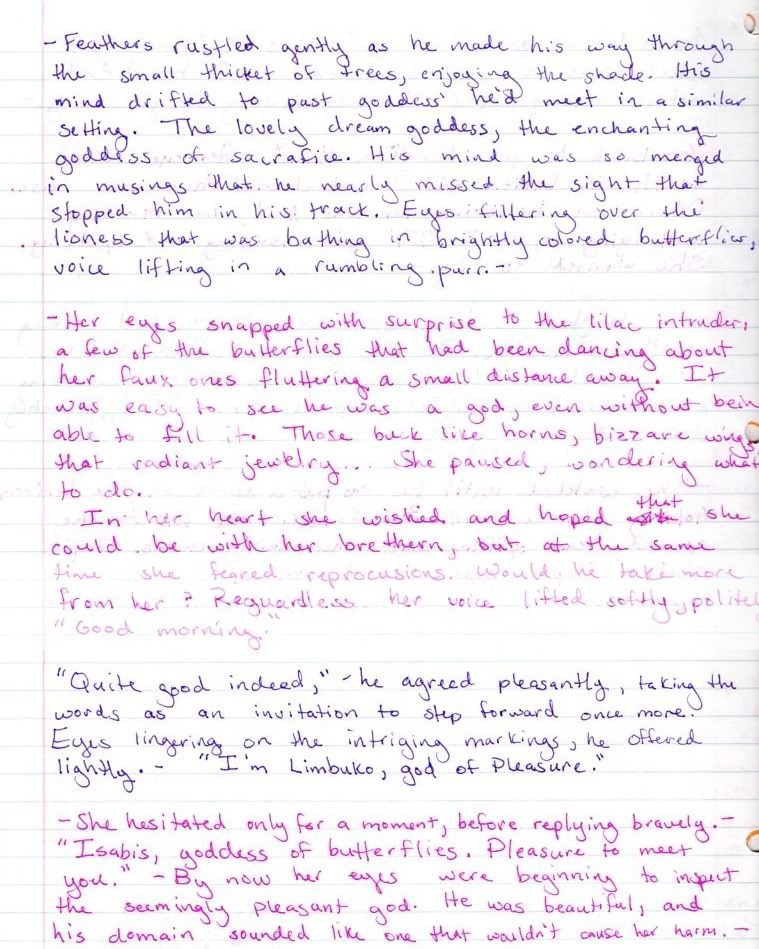 - Feathers rustled gently as he made his way through
the small thicket of trees, enjoying the shade. His
mind drifted to past goddess' he'd meet in a similar
setting. The lovely dream goddess, the enchanting
goddess of sacrafice. His mind was so merged
in musings that he nearly missed the sight that
stopped him in his track. Eyes filtering over the
lioness that was bathing in brightly colored butterflies,
voice lifting in a rumbling purr. -
- Her eyes snapped with surprise to the lilac intruder,
a few of the butterflies that had been dancing about
her faux ones fluttering a small distance away. It
was easy to see he was a god, even without bein
able to fill it. Those buck like horns, bizzare wings
that radiant jewelry... She paused, wondering what
to do.
In her heart she wished and hoped that she
could be with her brethern, but at the same
time she feared reprocusions. Would he take more
from her? Reguardless her voice lifted softly, politel
"Good morning."
"Quite good indeed," - he agreed pleasantly, taking the
words as an invitation to step forward once more.
Eyes lingering on the intriging markings, he offered
lightly. - "I'm Limbuko, god of Pleasure."
- She hesitated only for a moment, before replying bravely. -
"Isabis, goddess of butterflies. Pleasure to meet
you." - By now her eyes were beginning to inspect
the seemingly pleasant god. He was beautiful, and
his domain sounded like one that wouldn't cause her harm. -